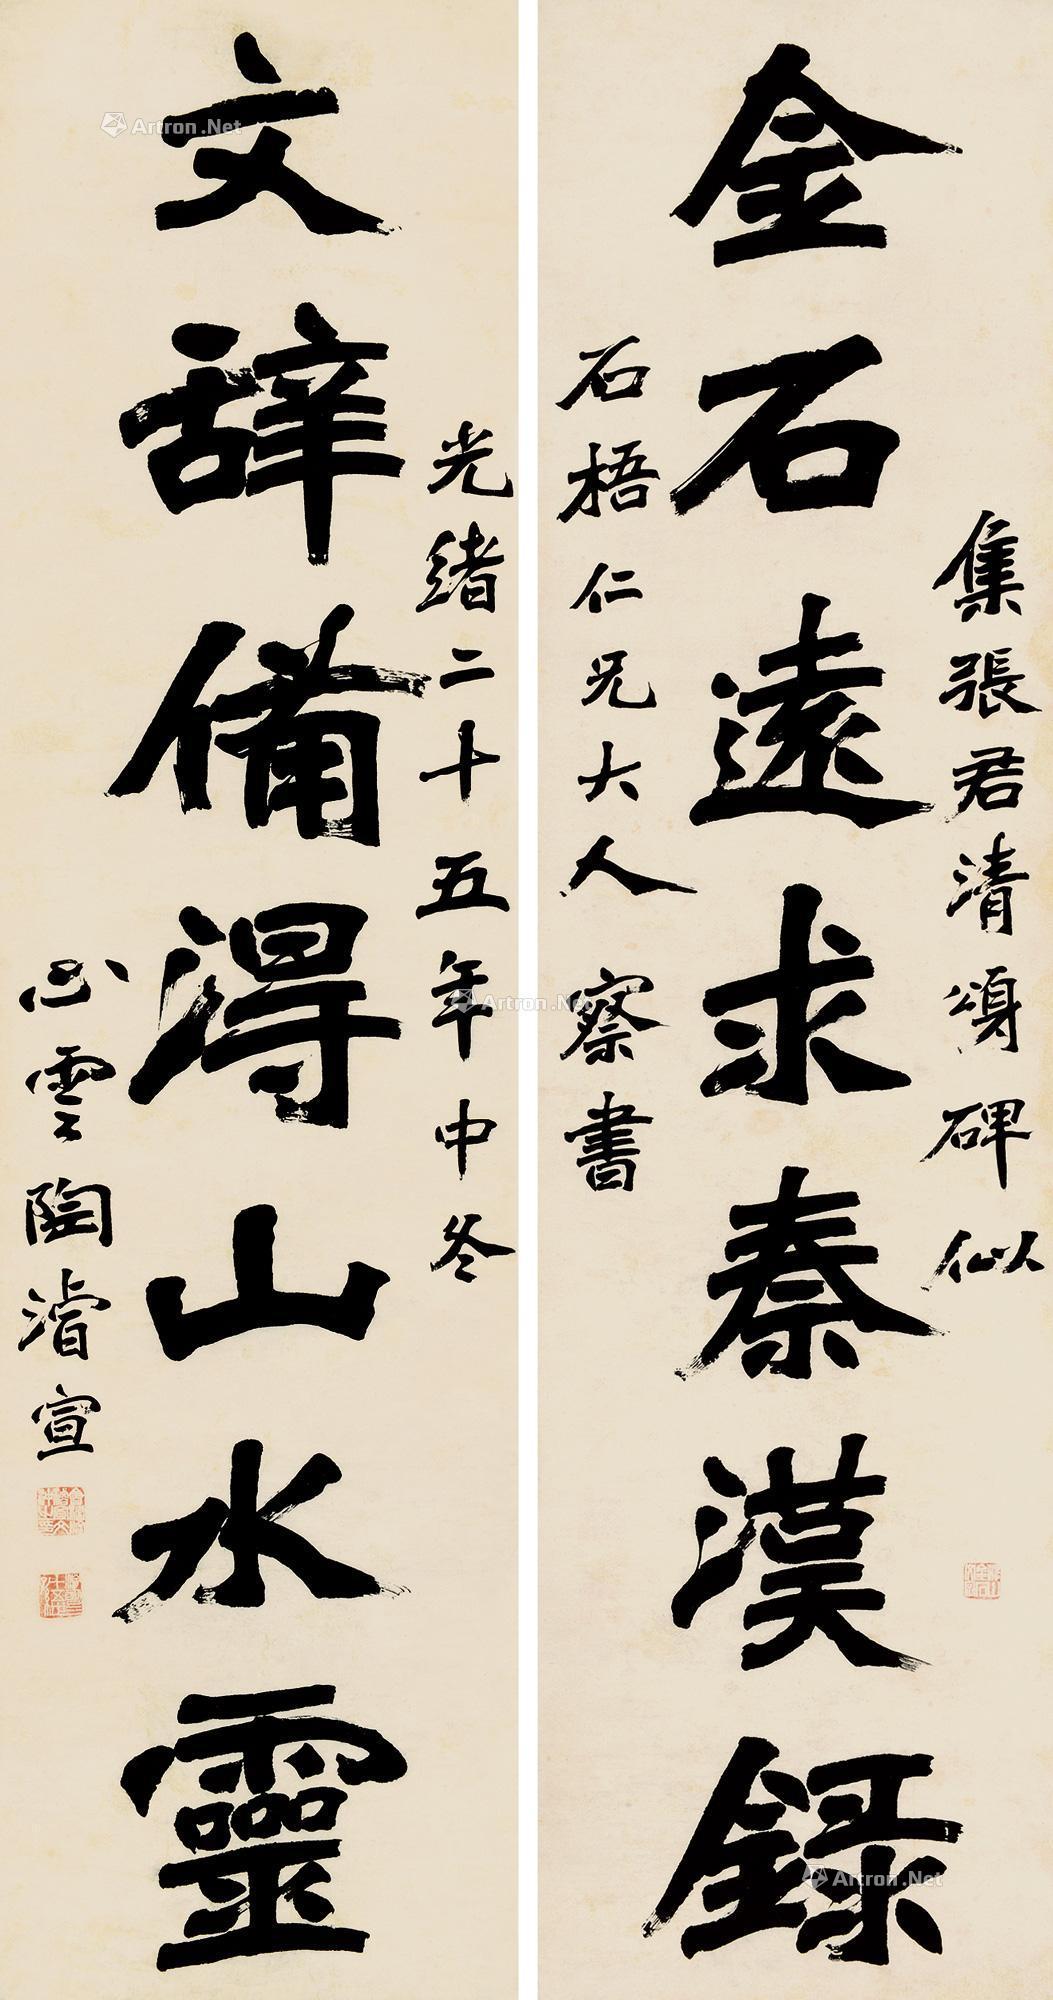 集張君清頌碑似
金石遠求秦漢錄
石梧仁兄大人察書
光緒二十五年中冬
文辭備得山水靈
心雲陶濬宣
Artron.Net
Artron.Net
Artron.Net